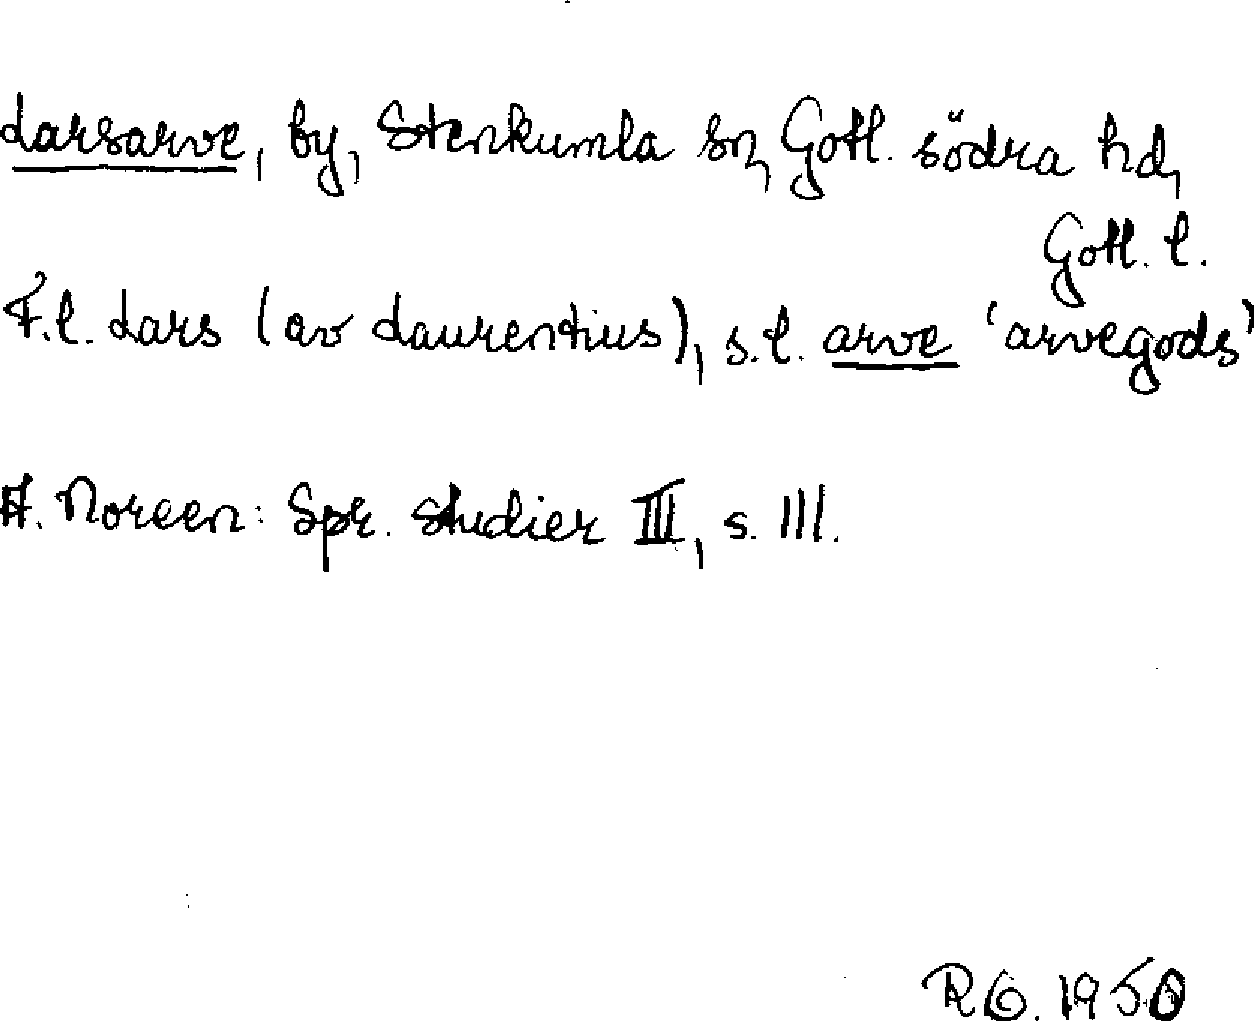 Larsarve, by, Stenkumla sn, Gotl. södra hd,
Gotl. l.
F.l. Lars (av Laurentius), s.l. arve 'arvegods'
A. Noreen: Spr. studier III, s. 111.
RG. 1950